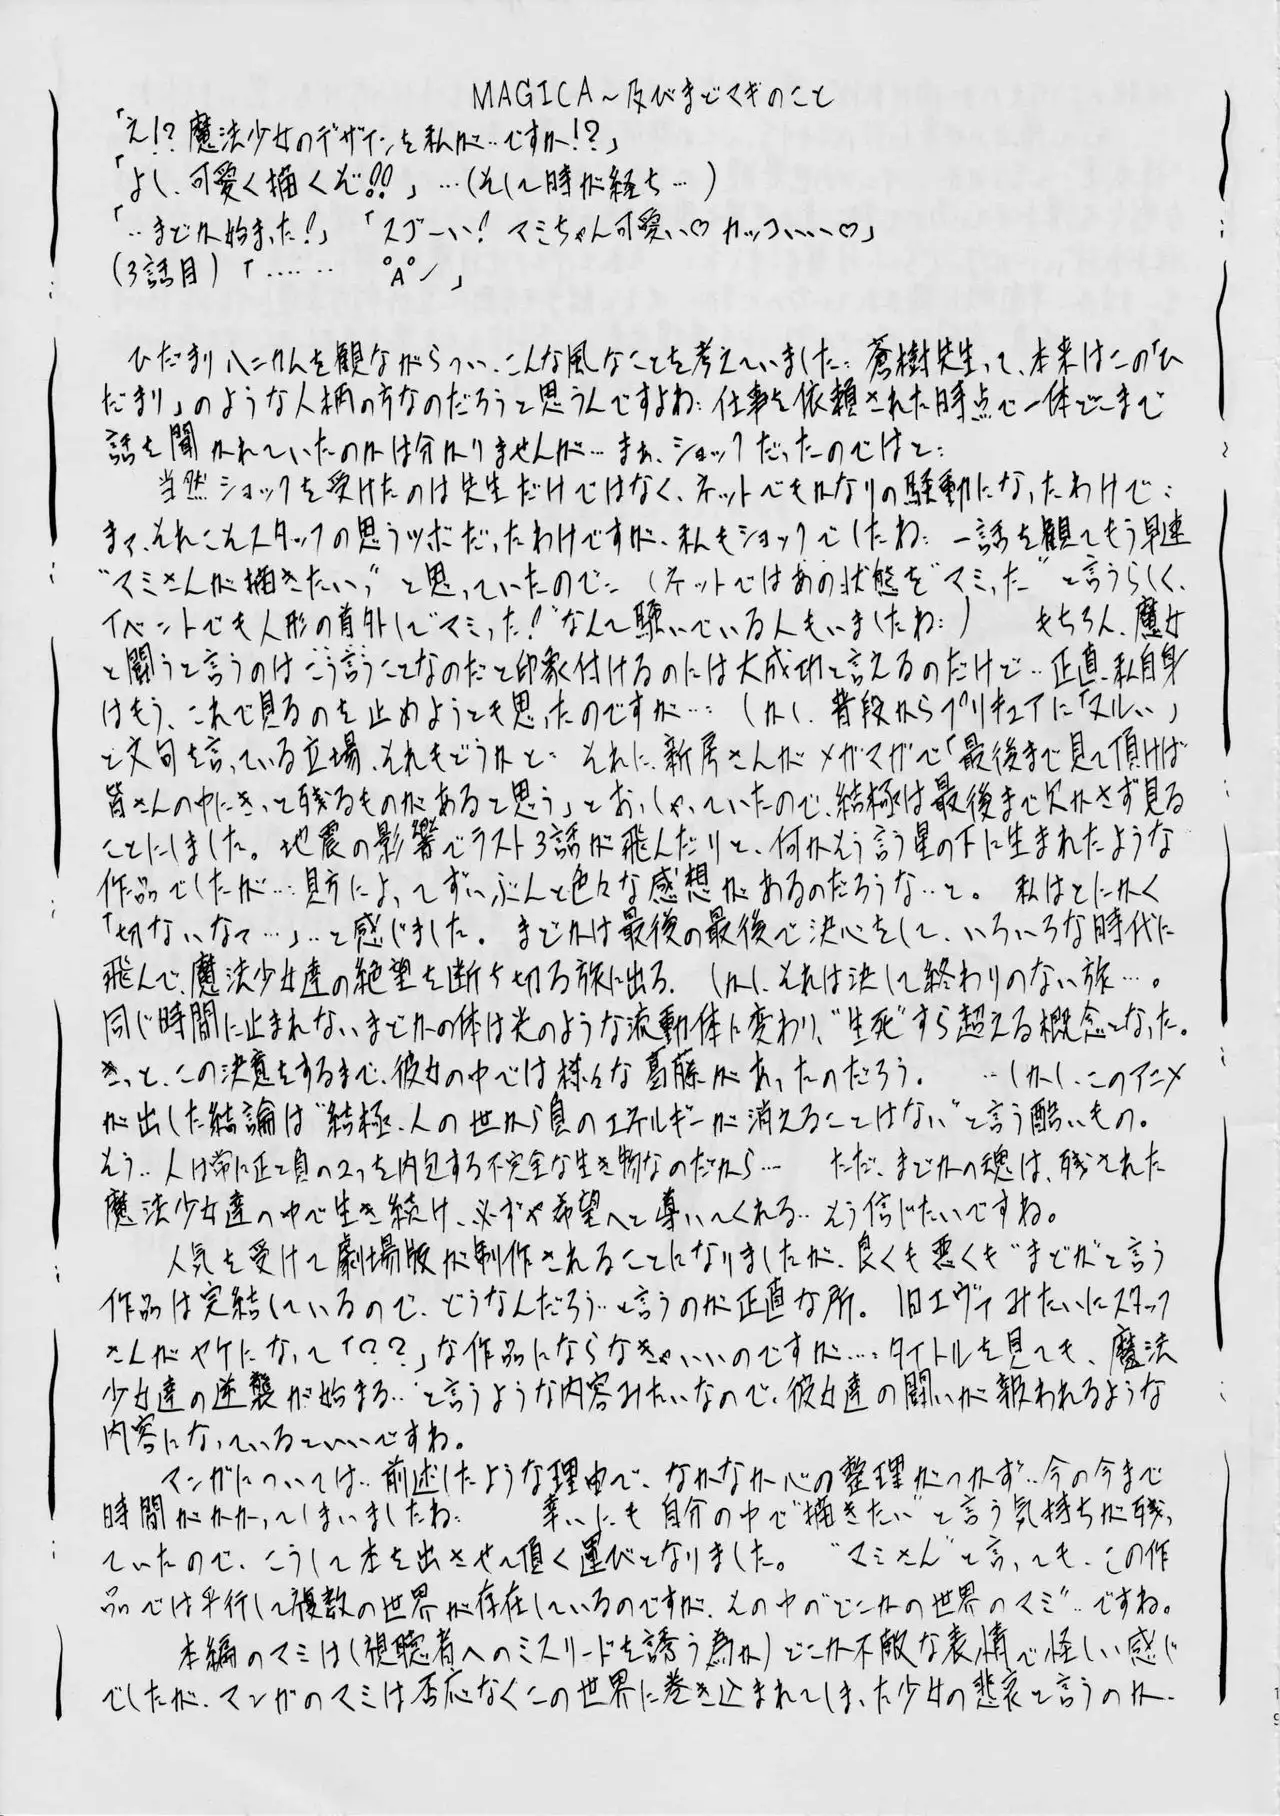 MAGICA～及びまどマギのこと
「え!? 魔法少女のデザインを私が‥ですか!?」
「よし、可愛く描くぞ!!」…(そして時が経ち…)
「‥まどか始まった!」「スゴーい! マミちゃん可愛い♡ カッコいい♡」
(3話目)「…… °A°ノ 」
ひだまりハニカムを観ながらつい、こんな風なことを考えていました‥ 蒼樹先生って、本来はこの「ひ
だまり」のような人柄の方なのだろうと思うんですよね‥ 仕事を依頼された時点で一体どこまで
話を聞かれていたのかは分かりませんが… まぁ、ショックだったのではと‥
当然ショックを受けたのは先生だけではなく、ネットでもかなりの騒動になったわけで‥
まァ、それこそスタッフの思うツボだったわけですが、私もショックでしたね‥ 一話を観てもう早速
“マミさんが描きたい”と思っていたので‥ (ネットではあの状態を“マミった”と言うらしく、
イベントでも人形の首外して“マミった!”なんて騒いでいる人もいましたね‥) もちろん、魔女
と闘うと言うのはこう言うことなのだと印象付けるのには大成功と言えるのだけど‥ 正直、私自身
はもう、これで見るのを止めようとも思ったのですが…‥ しかし、普段からプリキュアに「ヌルい」
と文句を言っている立場、それもどうかと‥ それに、新房さんがメガマガで「最後まで見て頂けば
皆さんの中にきっと残るものがあると思う」とおっしゃっていたので、結極は最後まで欠かさず見る
ことにしました。地震の影響でラスト3話が飛んだりと、何かそう言う星の下に生まれたような
作品でしたが…‥ 見方によってずいぶんと色々な感想があるのだろうな‥と。 私はとにかく
「切ないなァ…」‥と感じました。 まどかは最後の最後で決心をして、いろいろな時代に
飛んで、魔法少女達の絶望を断ち切る旅に出る。しかし、それは決して終わりのない旅…。
同じ時間に止まれないまどかの体は光のような流動体に変わり、“生死”すら超える概念となった。
きっと、この決意をするまで、彼女の中では様々な葛藤があったのだろう。 ‥しかし、このアニメ
が出した結論は“結極、人の世から負のエネルギーが消えることはない”と言う酷いもの。
そう‥人は常に正と負の2つを内包する不完全な生き物なのだから… ただ、まどかの魂は、残された
魔法少女達の中で生き続け、必ずや希望へと導いてくれる‥そう信じたいですね。
人気を受けて劇場版が制作されることになりましたが、良くも悪くも“まどか”と言う
作品は完結しているので、どうなんだろう‥と言うのが正直な所。旧エヴァみたいにスタッフ
さんがヤケになって「??」な作品にならなきゃいいのですが…‥ タイトルを見ても、魔法
少女達の逆襲が始まる‥と言うような内容みたいなので、彼女達の闘いが報われるような
内容になっているといいですね。
マンガについては‥前述したような理由で、なかなか心の整理がつかず‥今の今まで
時間がかかってしまいましたね‥ 幸いにも自分の中で“描きたい”と言う気持ちが残っ
ていたので、こうして本を出させて頂く運びとなりました。“マミさん”と言っても、この作
品では平行して複数の世界が存在しているのですが、その中の“どこかの世界のマミ”‥ですね。
本編のマミは(視聴者へのミスリードを誘う為か)どこか不敵な表情で怪しい感じ
でしたが、マンガのマミは否応なくこの世界に巻き込まれてしまった少女の悲哀と言うのか、
19